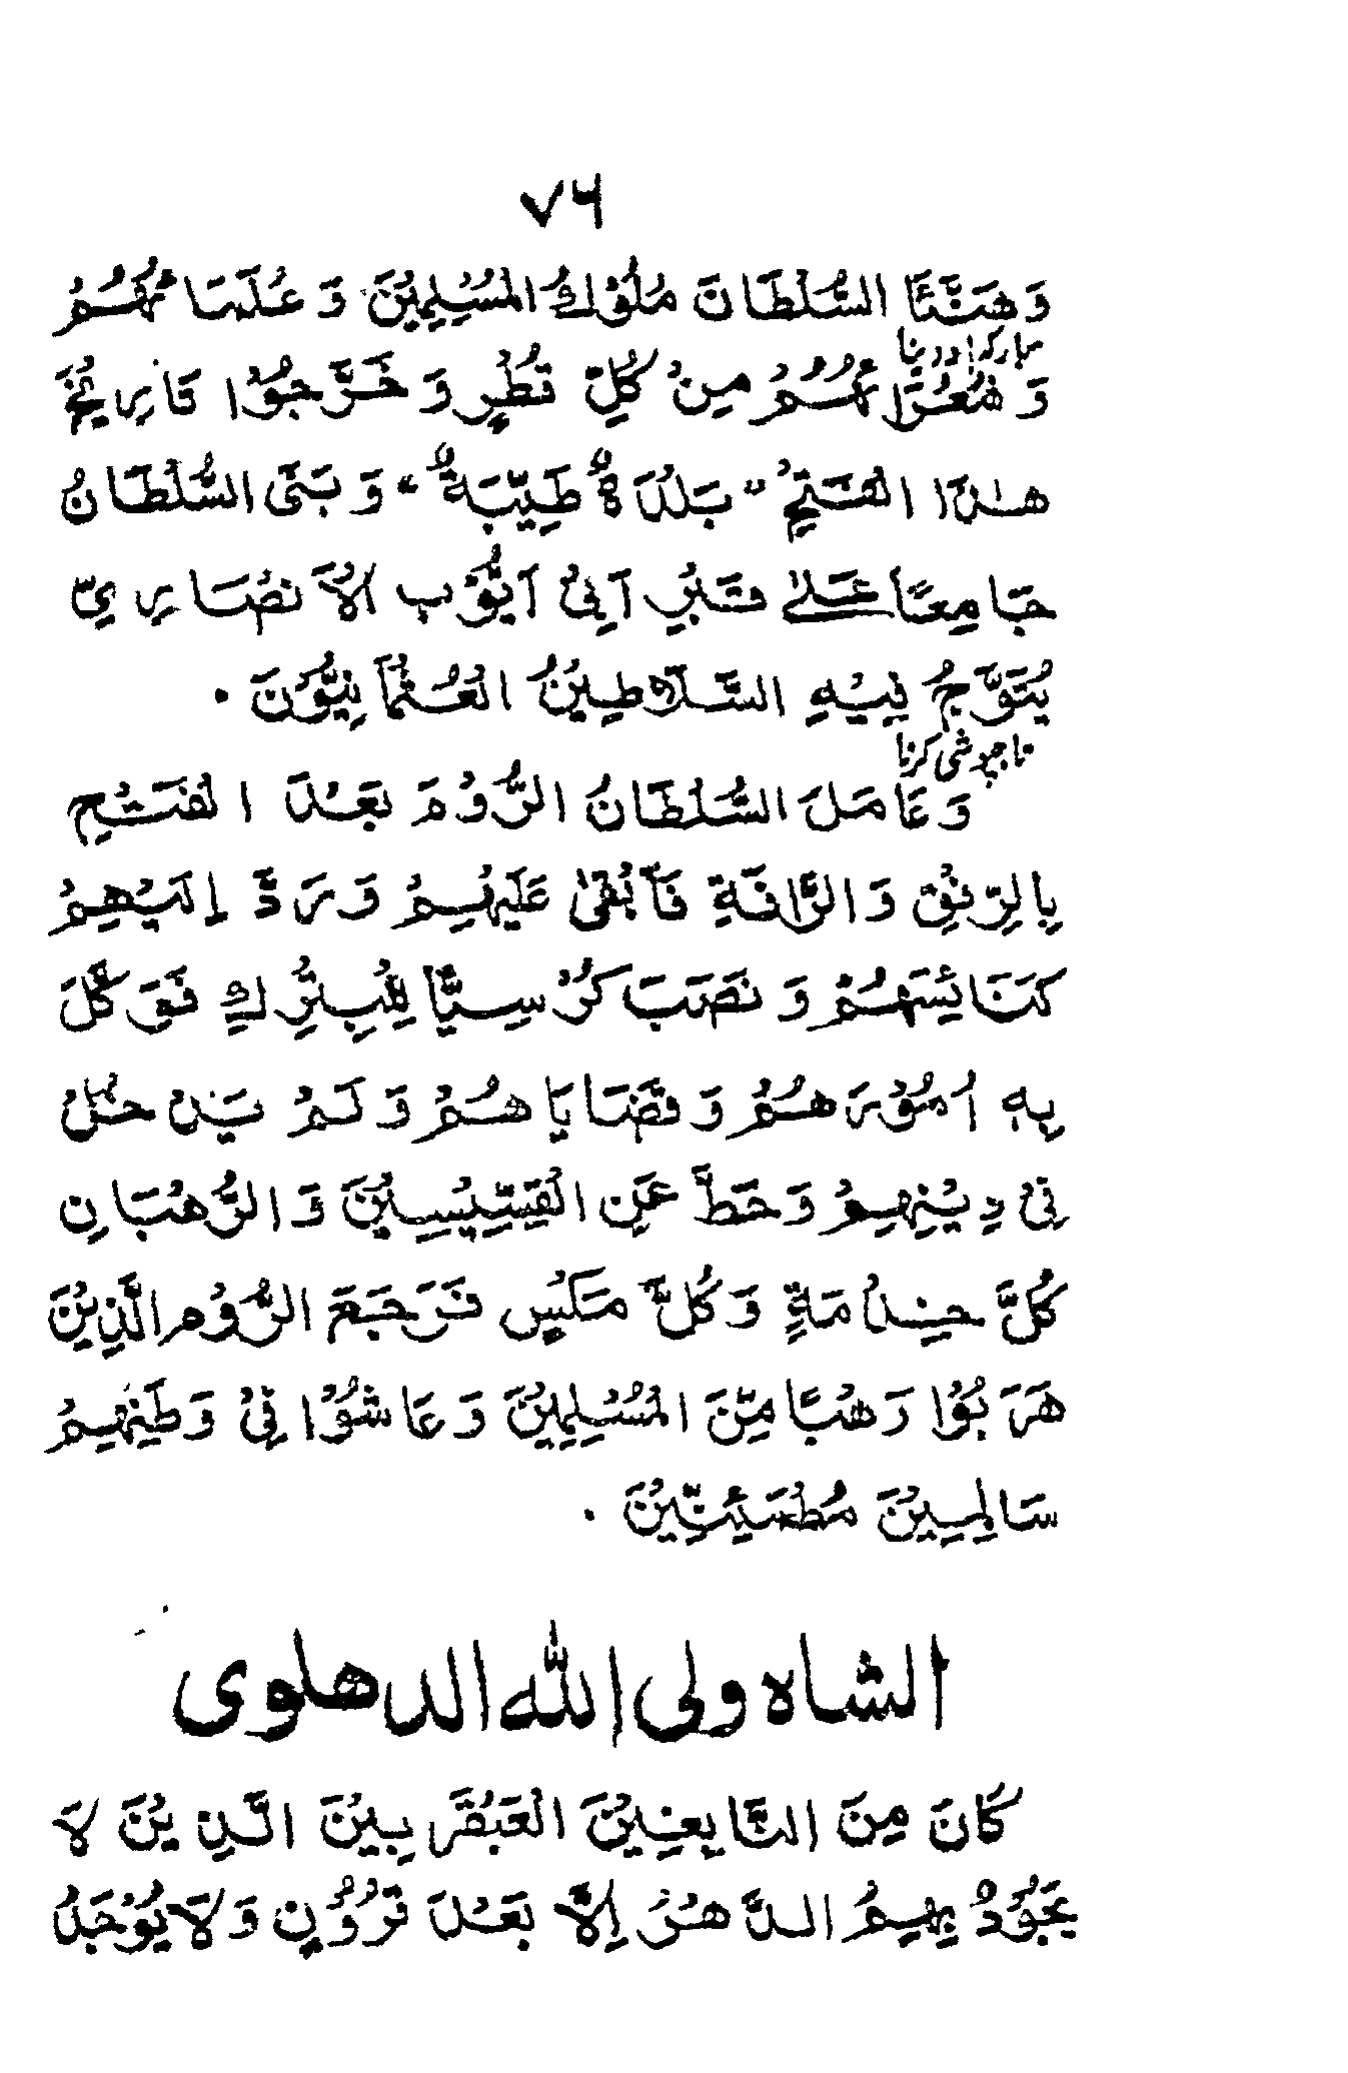 ۷۶
وَهَنَّأَ السُّلْطَانَ مُلُوْكُ الْمُسْلِمِيْنَ وَعُلَمَاءُهُمْ
مبارکباد دینا
وَشُعَرَاءُهُمْ مِنْ كُلِّ قُطْرٍ وَخَرَّجُوْا تَارِيْخَ
هٰذَا الْفَتْحِ "بَلْدَةٌ طَيِّبَةٌ" وَبَنَى السُّلْطَانُ
جَامِعًا عَلٰى قَبْرِ اَبِيْ اَيُّوْبِ الْاَنْصَارِيِّ
يُتَوَّجُ فِيْهِ السَّلَاطِيْنُ الْعُثْمَانِيُّوْنَ ۰
تاجپوشی کرنا
وَعَامَلَ السُّلْطَانُ الرُّوْمَ بَعْدَ الْفَتْحِ
بِالرِّفْقِ وَالرَّافَةِ فَاَبْقٰى عَلَيْهِمْ وَرَدَّ اِلَيْهِمْ
كَنَائِسَهُمْ وَنَصَبَ كُرْسِيًّا لِلْبِتْرِكِ فَوَكَّلَ
بِهٖ اُمُوْرَهُمْ وَقَضَايَاهُمْ وَلَمْ يَدْخُلْ
فِيْ دِيْنِهِمْ وَحَطَّ عَنِ الْقِسِّيْسِيْنَ وَالرُّهْبَانِ
كُلَّ خِدْمَةٍ وَكُلَّ مَكْسٍ فَرَجَعَ الرُّوْمُ الَّذِيْنَ
هَرَبُوْا رَهْبًا مِّنَ الْمُسْلِمِيْنَ وَعَاشُوْا فِيْ وَطَنِهِمْ
سَالِمِيْنَ مُطْمَئِنِّيْنَ ۰
الشاه ولی الله الدهلوی
كَانَ مِنَ النَّابِغِيْنَ الْعَبْقَرِيِيْنَ الَّذِيْنَ لَا
يَجُوْدُ بِهِمُ الدَّهْرُ اِلَّا بَعْدَ قُرُوْنٍ وَلَا يُوْجَدُ